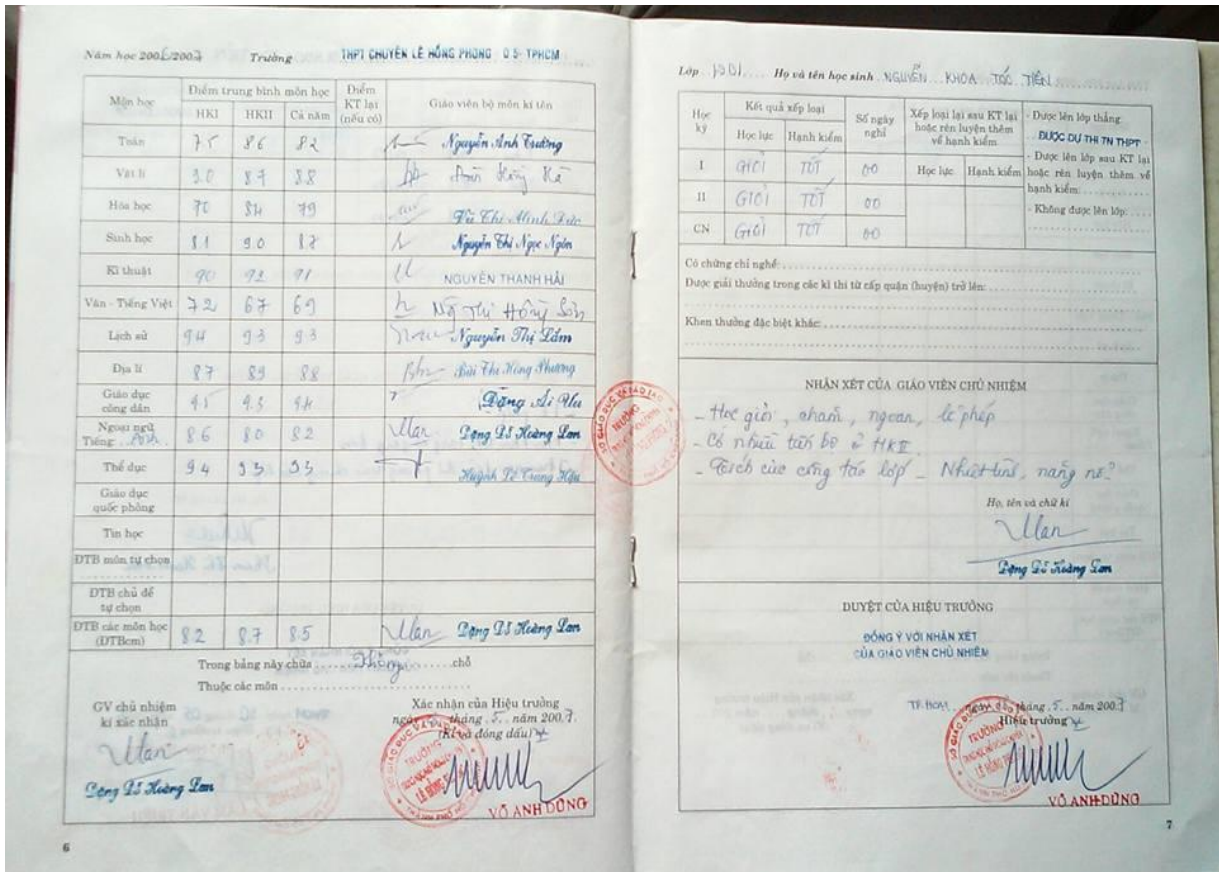 Năm học 2006/2007 Trường THPT CHUYÊN LÊ HỒNG PHONG Q 5- TPHCM
Môn học Điểm trung bình môn học Điểm KT lại (nếu có) Giáo viên bộ môn kí tên
HKI HKII Cả năm
Toán 75 86 82 Nguyễn Anh Trường
Vật lí 9.0 87 88
Hóa học 70 84 79 Vũ Thị Minh Đức
Sinh học 8.1 9.0 87 Nguyễn Thị Ngọc Ngôn
Kĩ thuật 90 92 91 NGUYỄN THANH HẢI
Văn - Tiếng Việt 72 67 69 Ng Thị Hồng Sơn
Lịch sử 94 93 93 Nguyễn Thị Lắm
Địa lí 87 89 88 Bùi Thị Hồng Phương
Giáo dục công dân 95 9.5 Đặng Ái Vu
Ngoại ngữ Tiếng Anh 86 80 82 Đặng Đỗ Hoàng Lan
Thể dục 94 95 95 Huỳnh Lê Trung Hậu
Giáo dục quốc phòng
Tin học
ĐTB môn tự chọn
ĐTB chủ đề tự chọn
ĐTB các môn học (ĐTBcm) 8.2 8.7 8.5 Đặng Đỗ Hoàng Lan
Trong bảng này chữa Không chỗ
Thuộc các môn
GV chủ nhiệm kí xác nhận
Đặng Đỗ Hoàng Lan
Xác nhận của Hiệu trưởng
ngày tháng 5 năm 2007
(Kí và đóng dấu)
VÕ ANH DŨNG
6
Lớp Họ và tên học sinh NGUYỄN KHOA TÓC TIÊN
Học kỳ Kết quả xếp loại Số ngày nghỉ Xếp loại lại sau KT lại hoặc rèn luyện thêm về hạnh kiểm
Học lực Hạnh kiểm Học lực Hạnh kiểm
I GIỎI TỐT 00
II GIỎI TỐT 00
CN GIỎI TỐT 00
- Được lên lớp thẳng:
ĐƯỢC DỰ THI TN THPT
- Được lên lớp sau KT lại hoặc rèn luyện thêm về hạnh kiểm:
- Không được lên lớp:
Có chứng chỉ nghề:
Được giải thưởng trong các kì thi từ cấp quận (huyện) trở lên:
Khen thưởng đặc biệt khác:
NHẬN XÉT CỦA GIÁO VIÊN CHỦ NHIỆM
- Học giỏi, chăm, ngoan, lễ phép
- Có nhiều tiến bộ ở HKII
- Tích cực công tác lớp - Nhiệt tình, năng nổ
Họ, tên và chữ kí
Đặng Đỗ Hoàng Lan
DUYỆT CỦA HIỆU TRƯỞNG
ĐỒNG Ý VỚI NHẬN XÉT
CỦA GIÁO VIÊN CHỦ NHIỆM
TP.HCM, ngày tháng 5 năm 2007
Hiệu trưởng
VÕ ANH DŨNG
7